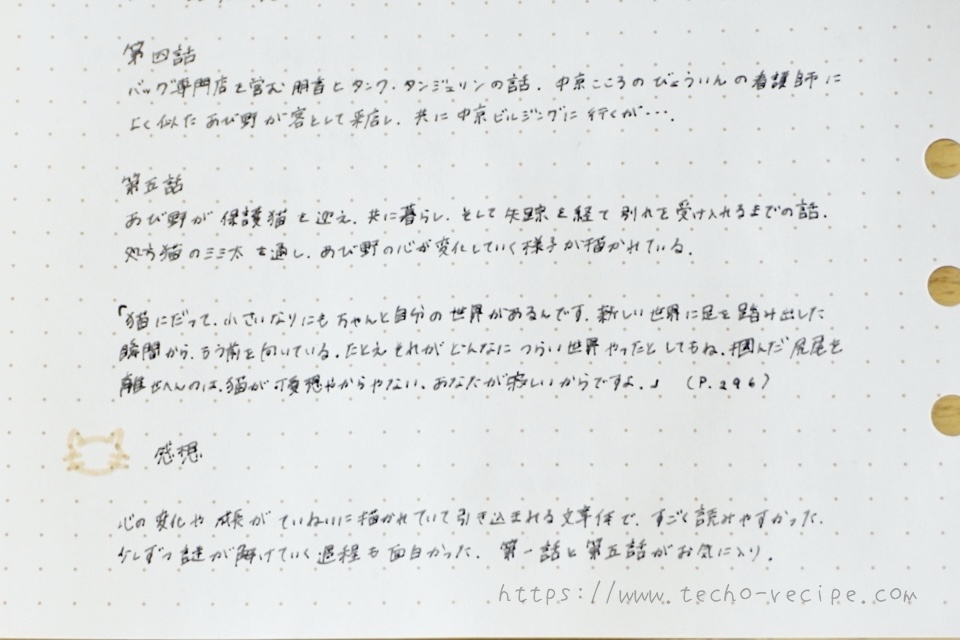 第四話
バッグ専門店を営む朋香とタンク・タンジェリンの話。中京こころのびょういんの看護師に
よく似たあび野が客として来店し、共に中京ビルジングに行くが…。
第五話
あび野が保護猫を迎え、共に暮らし、そして失踪を経て別れを受け入れるまでの話。
処方猫のミミ太を通し、あび野の心が変化していく様子が描かれている。
「猫にだって、小さいなりにもちゃんと自分の世界があるんです。新しい世界に足を踏み出した
瞬間から、もう前を向いている。たとえそれがどんなにつらい世界やったとしてもね。掴んだ尻尾を
離せへんのは、猫が可哀想やからやない、あなたが寂しいからですよ。」 (P.296)
感想
心の変化や成長がていねいに描かれていて引き込まれる文章体で、すごく読みやすかった。
少しずつ謎が解けていく過程も面白かった。第一話と第五話がお気に入り。
https://www.techo-recipe.com